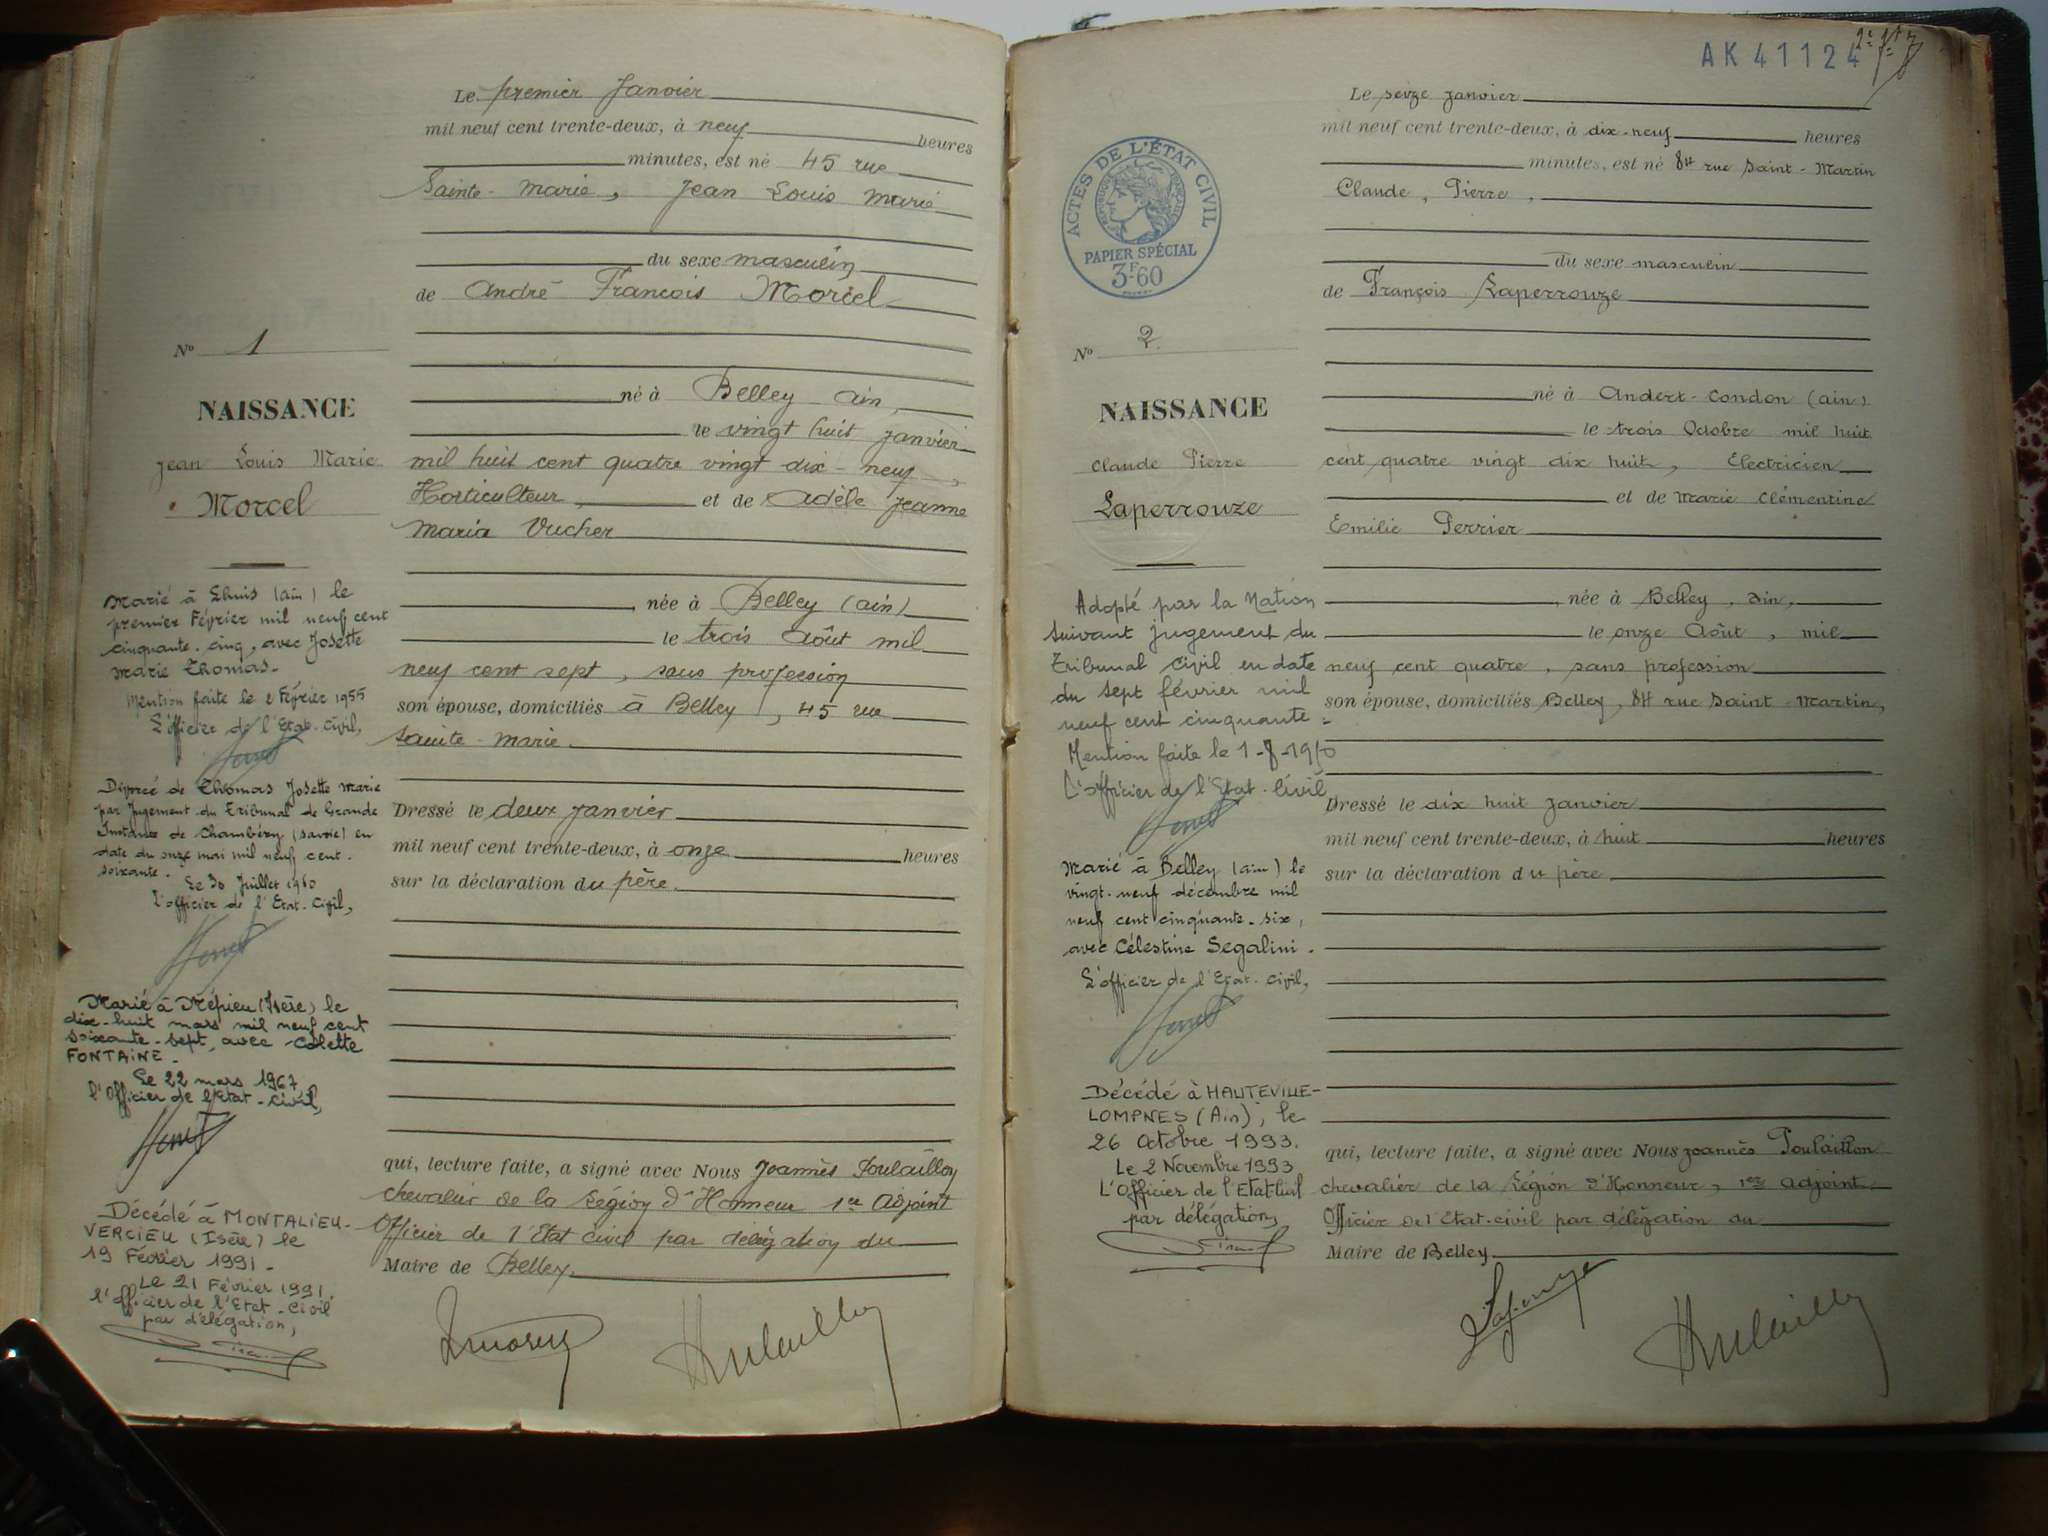 Le premier Janvier
mil neuf cent trente-deux, à neuf heures
minutes, est né 45 rue
Sainte-Marie, Jean Louis Marie
du sexe masculin
de André François Morcel
né à Belley Ain,
le vingt huit janvier
mil huit cent quatre vingt dix-neuf,
Horticulteur, et de Adèle Jeanne
Maria Vucher
, née à Belley (Ain)
le trois Août mil
neuf cent sept, sans profession
son épouse, domiciliés à Belley, 45 rue
Sainte-Marie.
Dressé le deux janvier
mil neuf cent trente-deux, à onze heures
sur la déclaration du père.
qui, lecture faite, a signé avec Nous Joannès Poulaillon
chevalier de la Légion d'Honneur 1er Adjoint
Officier de l'Etat civil par délégation du
Maire de Belley.
Nº 1
NAISSANCE
Jean Louis Marie
Morcel
Marié à Lhuis (Ain) le
premier Février mil neuf cent
cinquante-cinq, avec Josette
Marie Thomas.
Mention faite le 2 Février 1955
L'officier de l'Etat-Civil,
Divorcé de Thomas Josette Marie
par Jugement du Tribunal de Grande
Instance de Chambéry (Savoie) en
date du onze mai mil neuf cent.
soixante.
Le 30 Juillet 1960
L'officier de l'Etat-Civil,
Marié à Mépieu (Isère) le
dix-huit mars mil neuf cent
soixante-sept, avec Colette
FONTAINE.
Le 22 mars 1967
l'Officier de l'Etat-Civil,
Décédé à MONTALIEU-
VERCIEU (Isère) le
19 Février 1991.
Le 21 Février 1991.
l'officier de l'Etat-Civil
par délégation,
AK 41124
Le seize janvier
mil neuf cent trente-deux, à dix-neuf heures
minutes, est né 84 rue Saint-Martin
Claude, Pierre,
du sexe masculin
de François Laperrouze
né à Andert-Condon (Ain)
le trois Octobre mil huit
cent quatre vingt dix huit, Electricien
et de Marie Clémentine
Emilie Perrier
, née à Belley, Ain,
le onze Août, mil
neuf cent quatre, sans profession
son épouse, domiciliés Belley, 84 rue Saint-Martin,
Dressé le dix huit janvier
mil neuf cent trente-deux, à huit heures
sur la déclaration du père
qui, lecture faite, a signé avec Nous Joannès Poulaillon
chevalier de la Légion d'Honneur, 1er adjoint
Officier de l'Etat-civil par délégation du
Maire de Belley.
ACTES DE L'ÉTAT CIVIL
RÉPUBLIQUE FRANÇAISE
PAPIER SPÉCIAL
3F60
Nº 2.
NAISSANCE
Claude Pierre
Laperrouze
Adopté par la Nation
suivant jugement du
Tribunal Civil en date
du sept février mil
neuf cent cinquante.
Mention faite le 1-8-1950
L'officier de l'Etat-Civil
Marié à Belley (Ain) le
vingt-neuf décembre mil
neuf cent cinquante-six,
avec Célestine Segalini.
L'officier de l'Etat-Civil,
Décédé à HAUTEVILLE-
LOMPNES (Ain), le
26 Octobre 1993.
Le 2 Novembre 1993
L'Officier de l'Etat-Civil
par délégation,